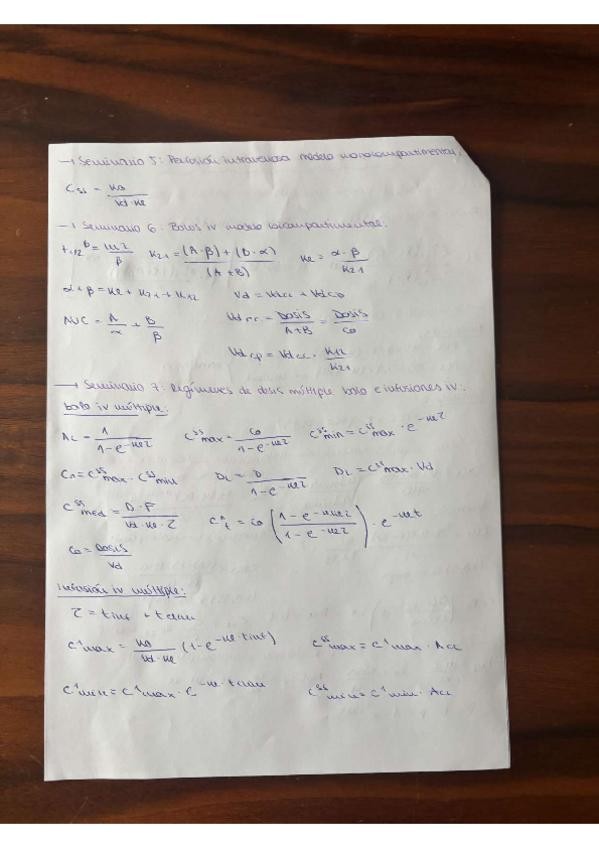 → Seminario 5: Perfusión intravenosa modelo monocompartimental.
Css = K0 / Vd·Ke
→ Seminario 6: Bolos iv modelo bicompartimental:
t1/2 β = ln2 / β   K21 = (A·β) + (B·α) / (A+B)   Ke = α·β / K21
α + β = Ke + K21 + K12   Vd = Vdcc + Vdcp
AUC = A/α + B/β   Vdcc = Dosis / A+B = Dosis / C0
Vdcp = Vdcc · K12 / K21
→ Seminario 7: Regímenes de dosis múltiple bolo e infusiones iv:
bolo iv múltiple:
Ac = 1 / 1-e^-keτ   C^ss max = C0 / 1-e^-keτ   C^ss min = C^ss max · e^-keτ
C0 = C^ss max - C^ss min   DL = D / 1-e^-keτ   DL = C^ss max · Vd
C^ss med = D·F / Vd·Ke·τ   C^n t = C0 (1-e^-nkeτ / 1-e^-keτ) · e^-ket
C0 = Dosis / Vd
Infusión iv múltiple:
τ = tinf + tclau
C^1 max = K0 / Vd·Ke (1-e^-ke·tinf)   C^ss max = C^1 max · Ac
C^1 min = C^1 max · e^-ke·tclau   C^ss min = C^1 min · Ac